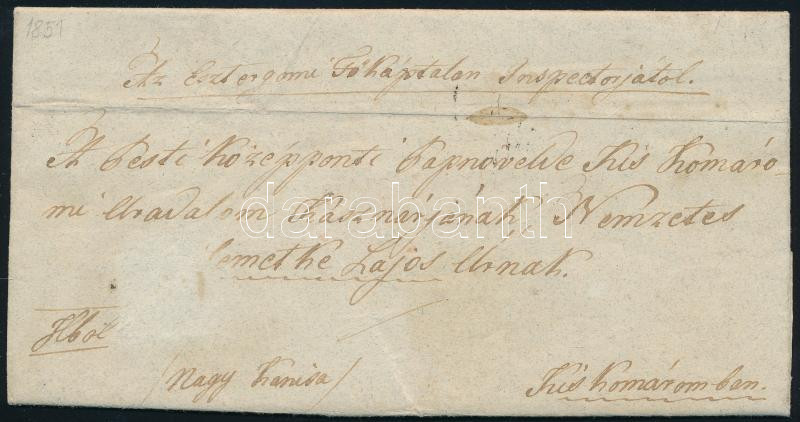 1851
Az Esztergomi Főkáptalan Inspectorjátol.
A Pesti Középponti Papnövelde Kis Komáro-
mi Uradalom Kásznárjának Nemzetes
Lajos Urnak.
/Nagy Kanisa/
Kis Komáromban.
darabanth